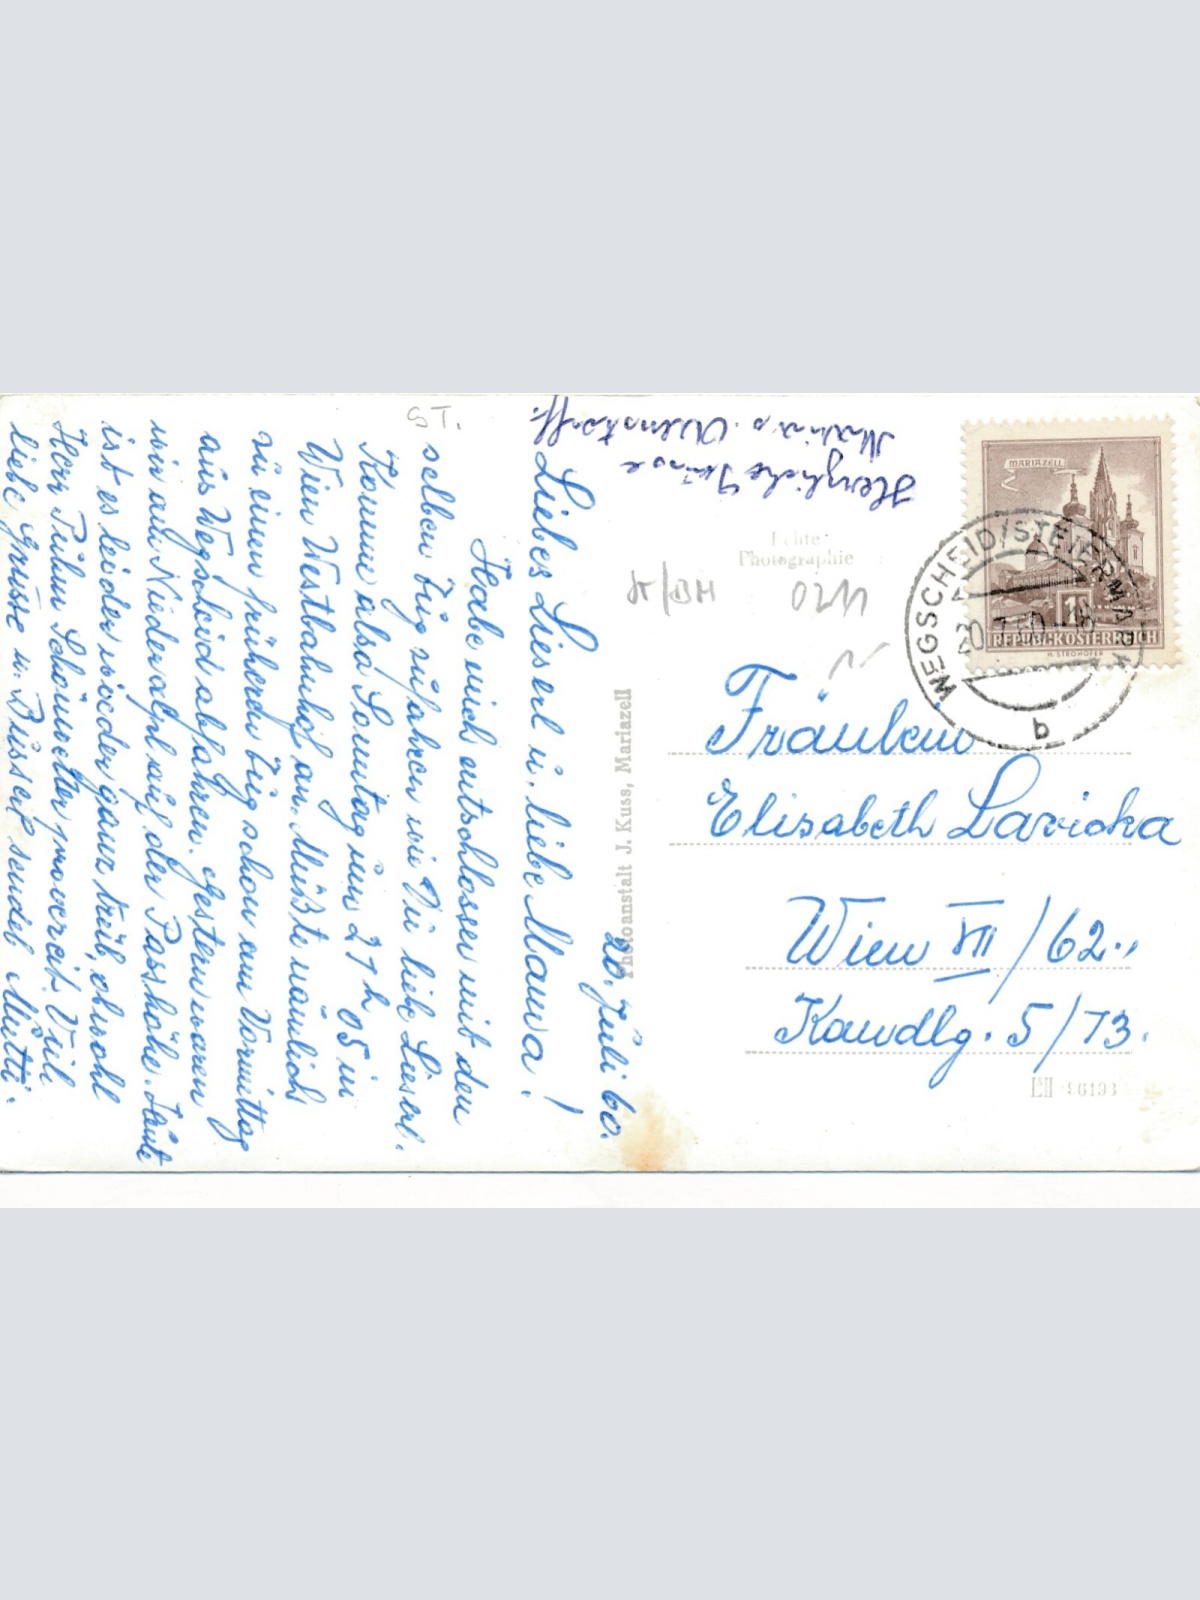 20. Juli 60.
Liebes Lieserl u. liebe Mama!
Habe mich entschlossen mit den
selben Zug zu fahren wie Du liebe Lieserl.
Komme also Sonntag um 21h 05 in
Wien Westbahnhof an. Müßte nämlich
zu einem früheren Zug schon am Vormittag
aus Wegscheid abfahren. Gestern waren
wir am Niederalpl auf der Passhöhe. Heute
ist es leider wieder ganz trüb, obwohl
Herr Prihm Schönwetter proverzit. Viele
liebe Grüsse u. Busserl sendet Mutti.
Herzliche Grüsse
ST.
Echte
Photographie
0211
Photoanstalt J. Kuss, Mariazell
MARIAZELL
1S
REPUBLIK ÖSTERREICH
H. STROHOFER
WEGSCHEID/STEIERMARK
b
Fräulein
Elisabeth Lavicka
Wien VII/62.,
Kandlg. 5/73.
96193